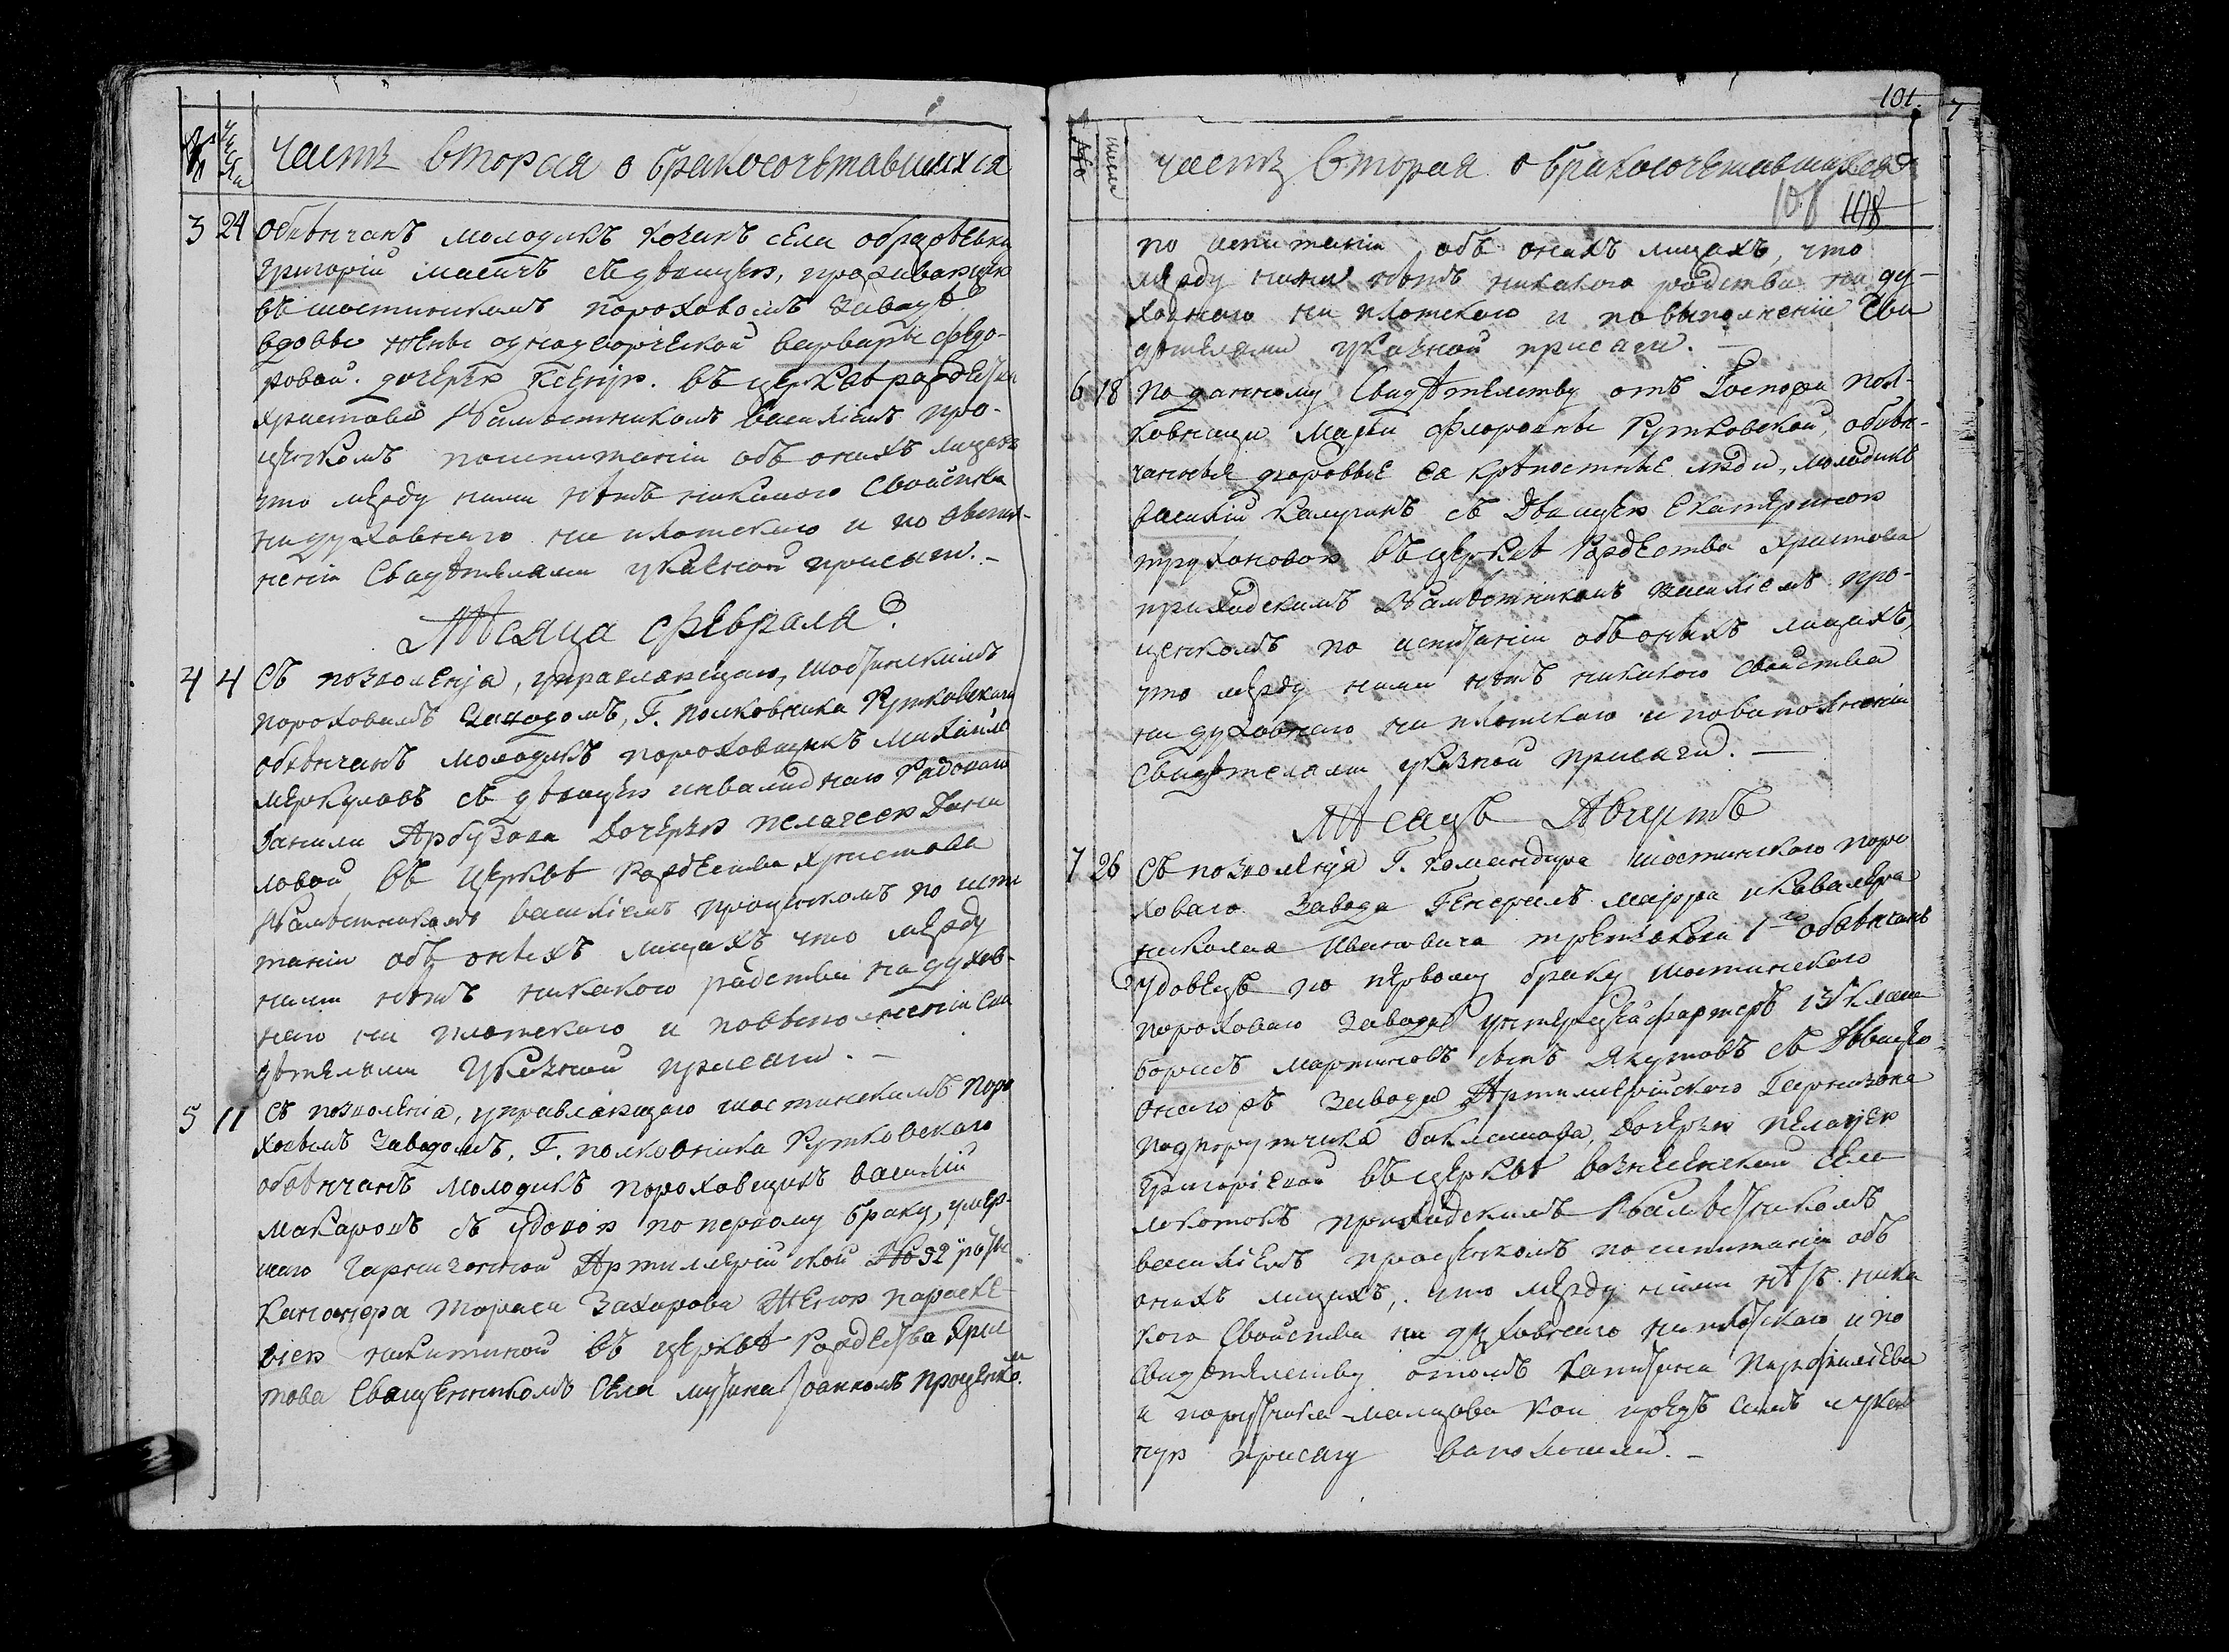 №
числа
часть вторая о бракосочетавшихся
3 24 обвѣнчанъ молодикъ козакъ села ображѣевки
григорій масичъ съ дѣвицею, проживающею
въ шостинскомъ пороховомъ заводѣ
вдовы жены однодворческой варвары федо-
ровой. дочерью Ксенію. въ церквѣ рождества
христова Намѣстникомъ василіемъ про-
ценкомъ по испитаніи объ онихъ лицахъ
что межу ними нѣтъ никакого свойства
ни духовнаго ни плотскаго и по выпол-
неніи свидѣтелями указной присяги.-
Мѣсяца февраля
4 4 Съ позволенія, управляющаго, шостинскимъ
пороховымъ заводомъ, Г. полковника Рутковскаго
обвѣнчанъ молодикъ пороховщикъ михаило
меркуловъ съ дѣвицею инвалиднаго Радоваго
данили Арбузова дочерью пелагеею Дани
ловой въ церквѣ рождества христова
Намѣстникомъ василіемъ проценкомъ по испи
таніи объ онихъ лицахъ что межу
ними нѣтъ никакого родства ни духов-
наго ни плотскаго и повыполненіи сви
дѣтелями указной присяги.-
5 11 Съ позволенія, управляющаго шостинскимъ поро
ховымъ заводомъ, Г. полковника Рутковскаго
обвѣнчанъ молодикъ пороховщикъ василій
макаровъ съ удовою по первому браку, умер-
шаго гарнизонной Артиллерійской № 32 роты
канонера тараса Захарова женою параске-
віею никитиной въ церквѣ Рождества Хрис
това священникомъ села лушна Іоанномъ проценко.
101
7
№
числа
часть вторая о бракосочетавшихся
108
по испитаніи объ онихъ лицахъ, что
межу ними нѣтъ никакого родства ни ду-
ховнаго ни плотскаго и по выполненіи сви
дѣтелями указной присяги.-
6 18 По данному свидѣтелству отъ Госпожи пол-
ковници Марьи флоровны Рутковской, обвѣн-
чанные дворовые еа крѣпостные люди, молодикъ
василій калугинъ съ Дѣвицею Екатериною
трухоновою въ церквѣ Рождества Христова
приходскимъ Намѣстникомъ василіемъ про-
ценкомъ по испитаніи объ онихъ лицахъ,
что межу ними нѣтъ никакого свойства
ни духовнаго ни плотскаго и повыполненіи
свидѣтелями указной присяги.-
Мѣсяцъ Августъ
7 26 Съ позволенія Г. командира шостинскаго поро
ховаго завода Генералъ маіора и кавалера
николая Ивановича третьякова 1го обвѣнчанъ
удовецъ по первому браку шостинскаго
пороховаго завода унтерцейхфартеръ 13 класа
борисъ мартиновъ сынъ Якутовъ съ дѣвицею
онагожъ завода Артиллерійскаго Гарнизона
подпорутчика баклашова, дочерью пелагіею
григоріевой въ церквѣ вознесенской села
локотокъ приходскимъ Намѣстникомъ
василіемъ проценкомъ по испитаніи объ
онихъ лицахъ, что межу ними нѣтъ ника
кого свойства ни духовнаго ни плотскаго и по
свидѣтелству отомъ капитана парфиліева
и порутчика малцова кои предъ симъ и указ
ную присягу выполнили.-